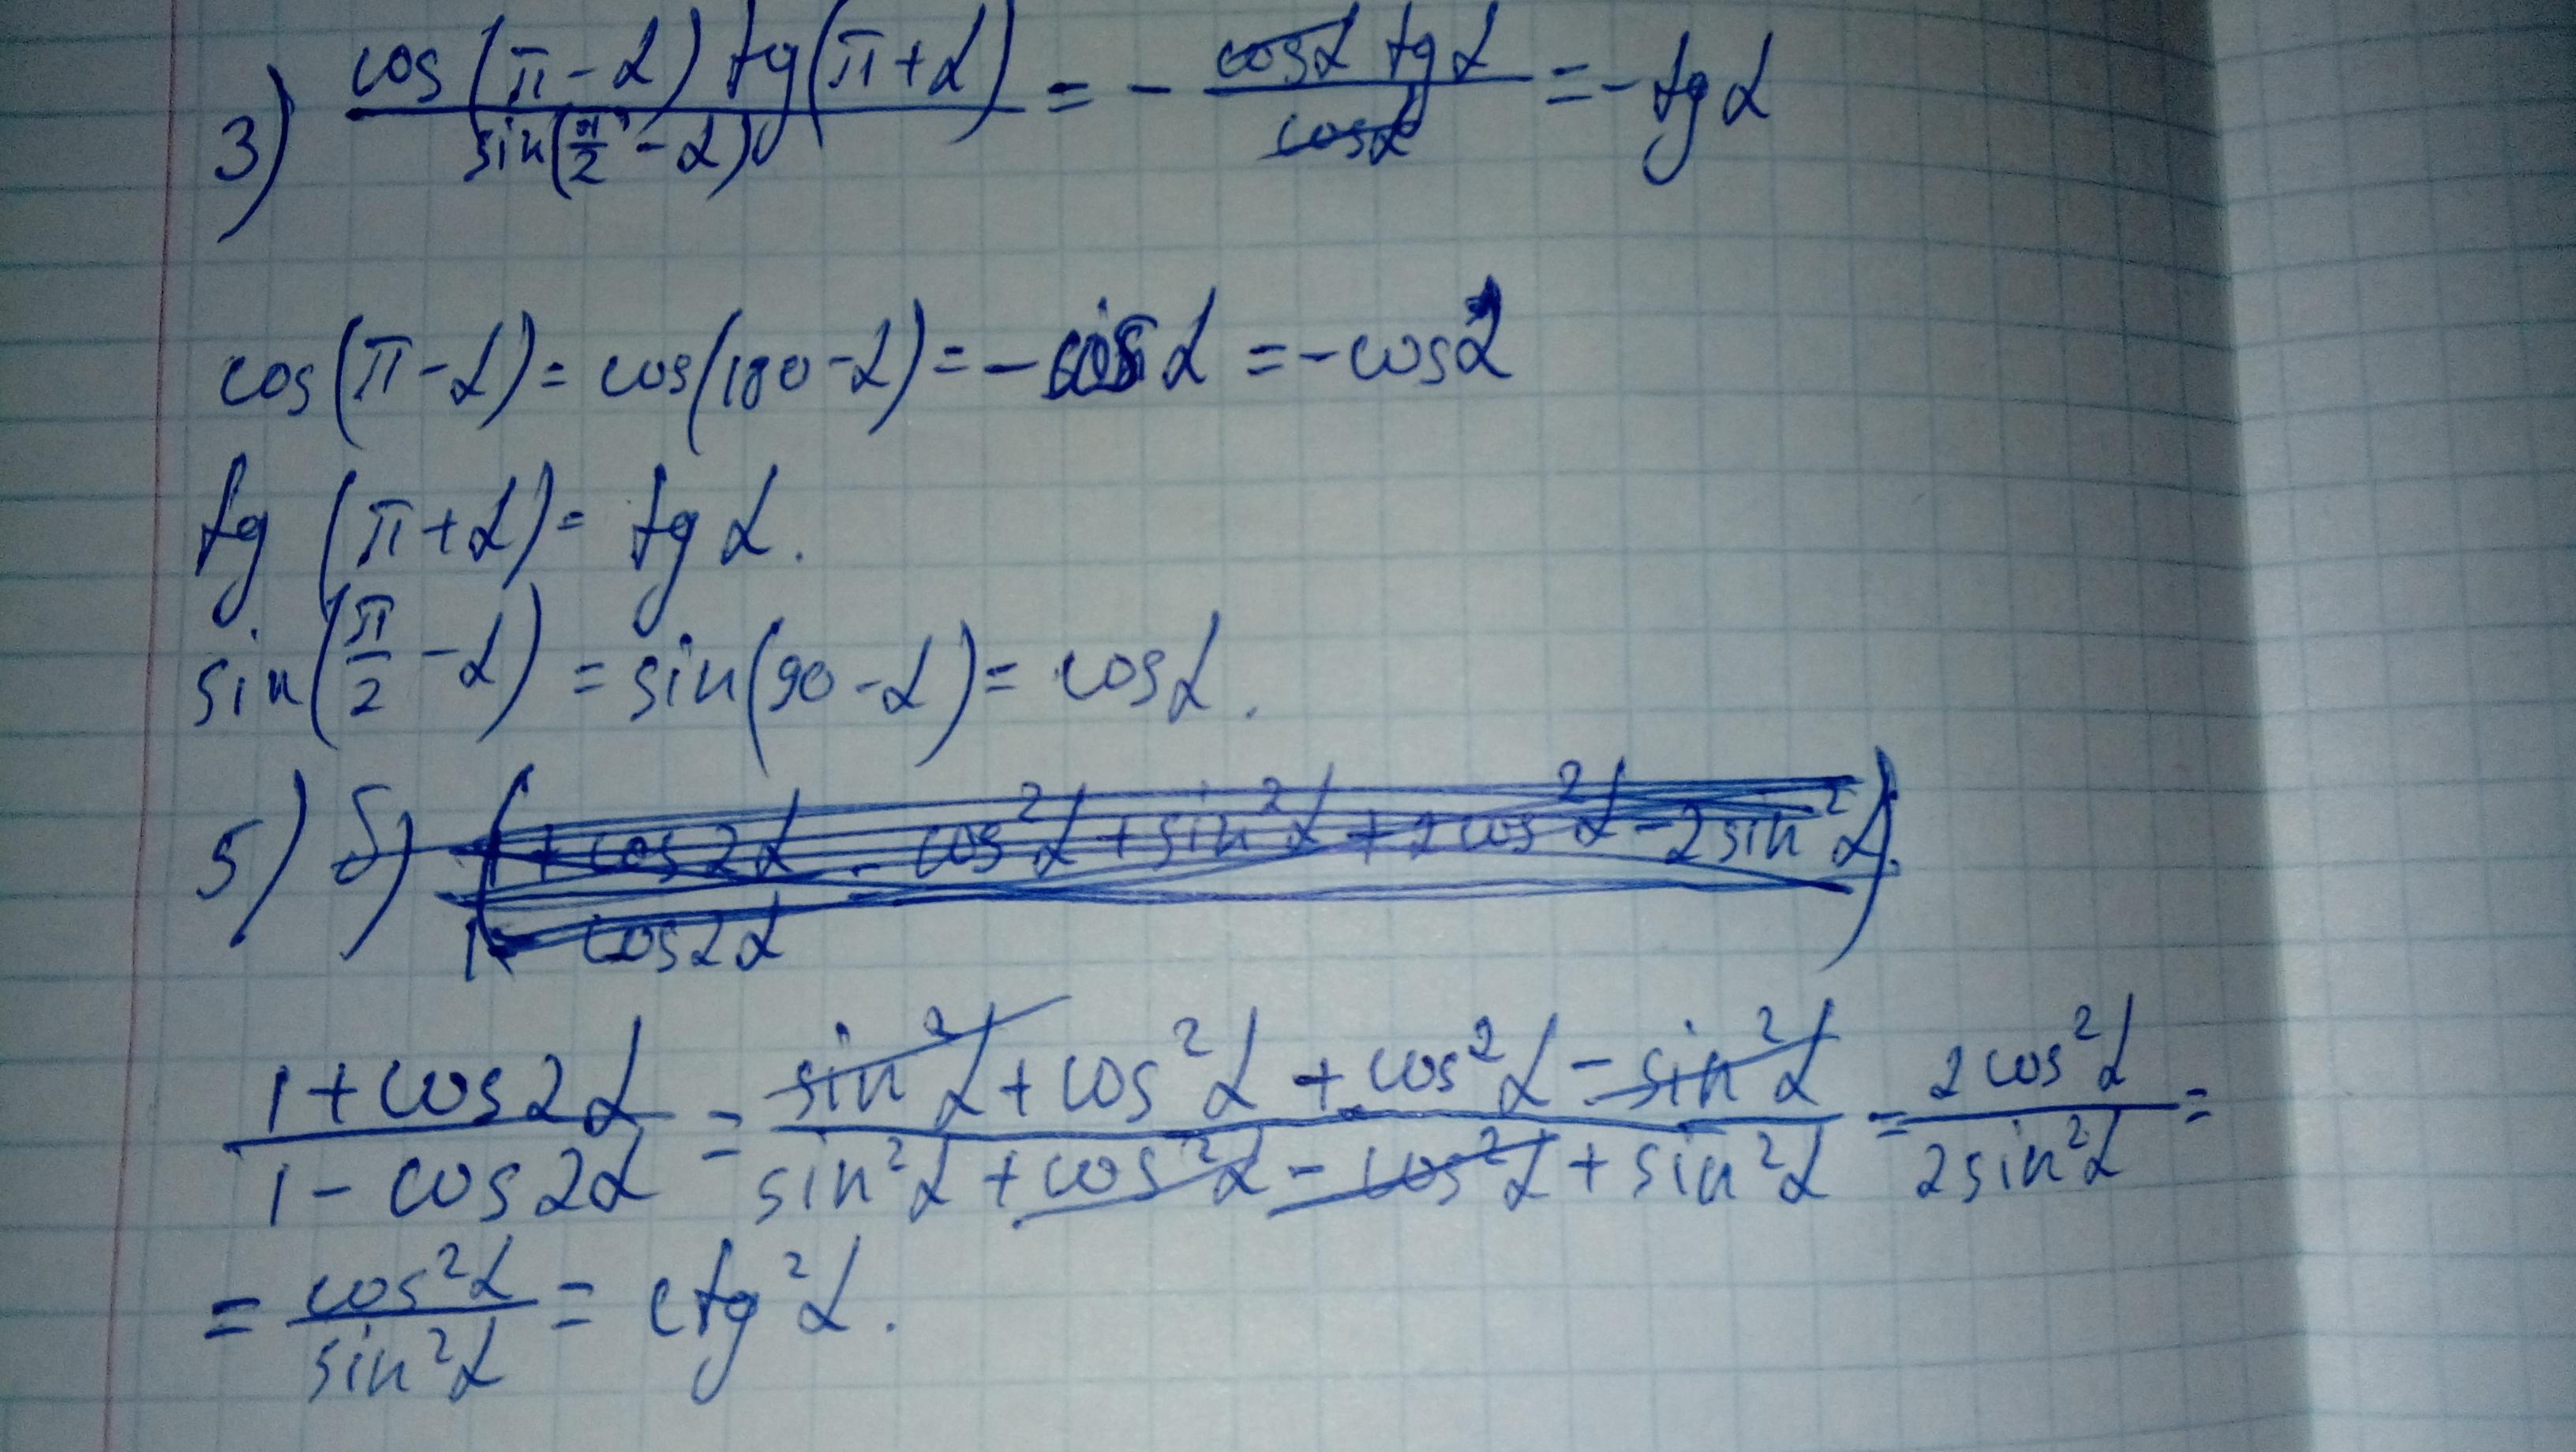 3) cos(π-α) tg(π+α) / sin(π/2 - α) = - cosα tgα / cosα = - tgα
cos(π-α) = cos(180-α) = - cos α = - cosα
tg (π+α) = tg α.
sin(π/2 - α) = sin(90-α) = cosα.
5) б) (1 + cos2α - cos²α + sin²α + 2cos²α - 2sin²α).
1 - cos2α
1+cos2α / 1-cos2α = sin²α + cos²α + cos²α - sin²α / sin²α + cos²α - cos²α + sin²α = 2cos²α / 2sin²α =
= cos²α / sin²α = ctg²α.